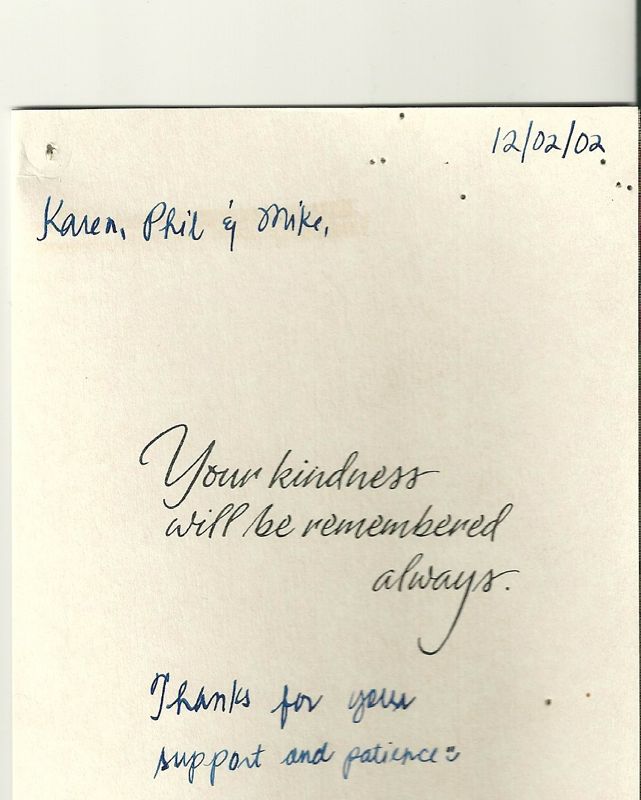 12/02/02
Karen, Phil & Mike,
Your kindness
will be remembered
always.
Thanks for your
support and patience